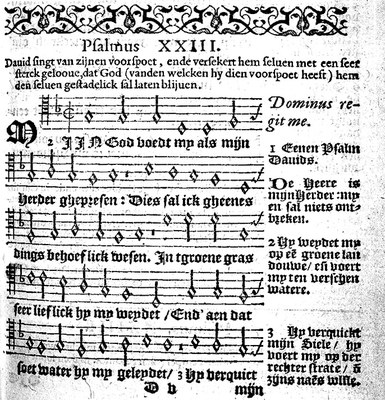 Psalmus XXIII.
Dauid singt van zijnen voorspoet, ende versekert hem seluen met een seer
sterck gelooue, dat God (vanden welcken hy dien voorspoet heeft) hem
den seluen gestadelick sal laten blijuen.
Dominus re-
git me.
2 MIJN God voedt my als mijn
Herder ghepresen: Dies sal ick gheenes
dings behoef lick wesen. In tgroene gras
seer lieflick hy my weydet / End' aen dat
soet water hy my geleydet / 3 Hy verquict
D v mijn
1 Eenen Psalm
Dauids.
De Heere is
mijn Herder: my
en sal niets ont-
breken.
2 Hy weydet my
op eẽ groene lan
douwe / eñ voert
my ten verschen
watere.
3 Hy verquickt
mijn Siele / hy
voert my op der
rechter strate / &
zijns naẽs wille.